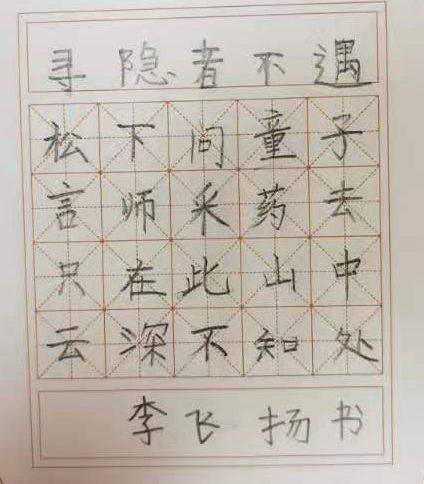 寻隐者不遇
松下问童子
言师采药去
只在此山中
云深不知处
李飞扬书